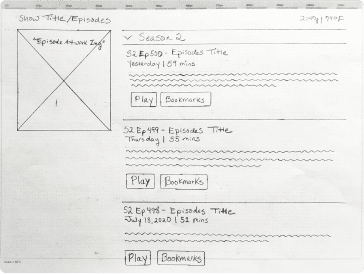 Show Title/Episodes
"Episode Artwork Img"
Season 2
S2 Ep500 - Episodes Title
Yesterday | 59 mins
Play Bookmarks
S2 Ep499 - Episodes Title
Thursday | 55 mins
Play Bookmarks
S2 Ep498 - Episodes Title
July 18, 2020 | 51 mins
Play Bookmarks